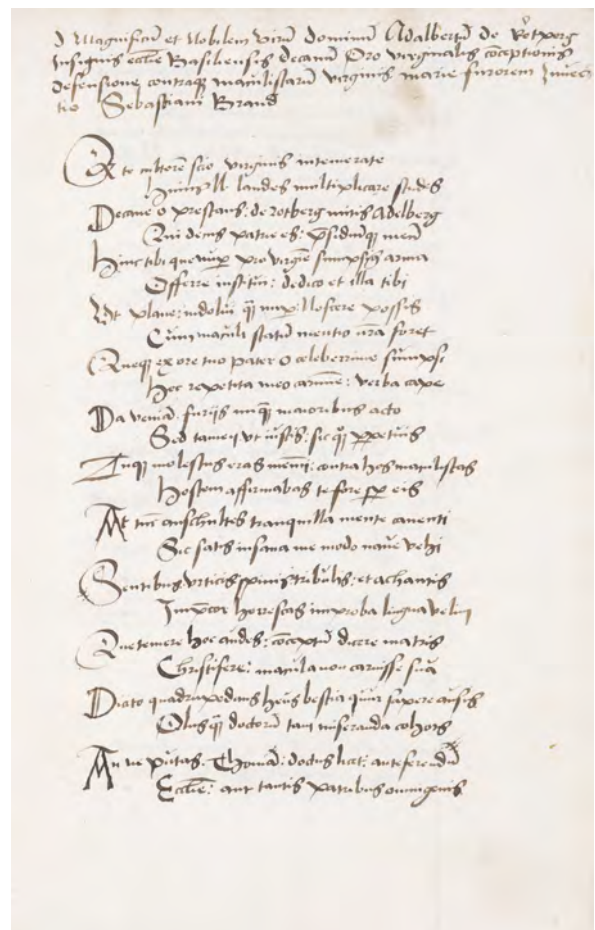 d Magnificū et Nobilem virū dominū Adalbertū de Rotperg
Insignis ecclie Basiliensis decanū Pro virginalis cōceptionis
defensione contraq maculistarū virginis marie furorem Invec
tio Sebastiani Brand
te cultorē scio virginis intemerate
laudes multiplicare studes
Decane o prestans: de rotberg mitis Adelberg
Qui decus patrie es: p̄sidiūq meū
Hinc tibi que nup pro virgīe sumpsim9 arma
Offerre institui: dedico et illa tibi
Vt plane: indolui q̄ nup: Noscere posses
Cum maculi statū mentio nr̄a foret
Queq ex ore tuo pater o celeberrime sumpsi
Hec repetita meo carmīe: verba cape
Da veniā: furijs nūq̄ maioribus acto
Sed tamen vt iustis: sic q̄ perpetuis
molestus eras memī: contra hos maculistas
Hostem affirmabas te fore eis
At tūc auschultes tranquilla mente canenti
Sic satis insana me modo naue vehi
Sentibus vrticis spinis tribulis: et achantis
horrescas improba lingua velim
Que temere hoc audes: cōceptū dicere matris
Christifere: macula non caruisse sua
Dicito quadrupedans heus bestia quid sapere ausis
Plus q̄ doctorū tam miseranda cohors
An ne putas: Thomā: doctus licet: anteferendū
Ecclīe: aut tantis patribus omnigenis